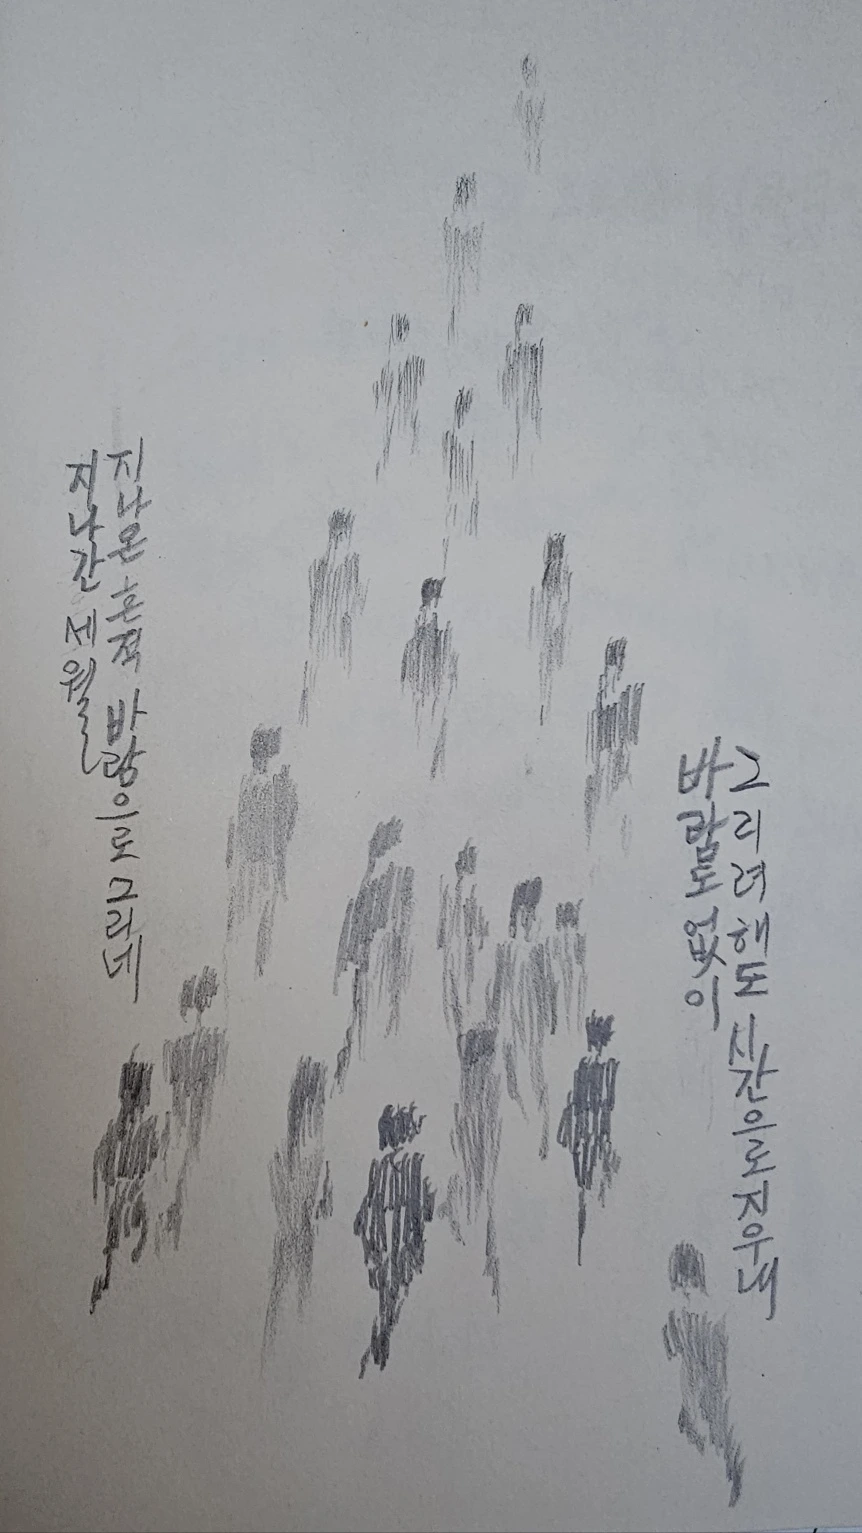 지나간 세월
지나온 흔적 바람으로 그리네
바람도 없이
그리려해도 시간으로 지우네